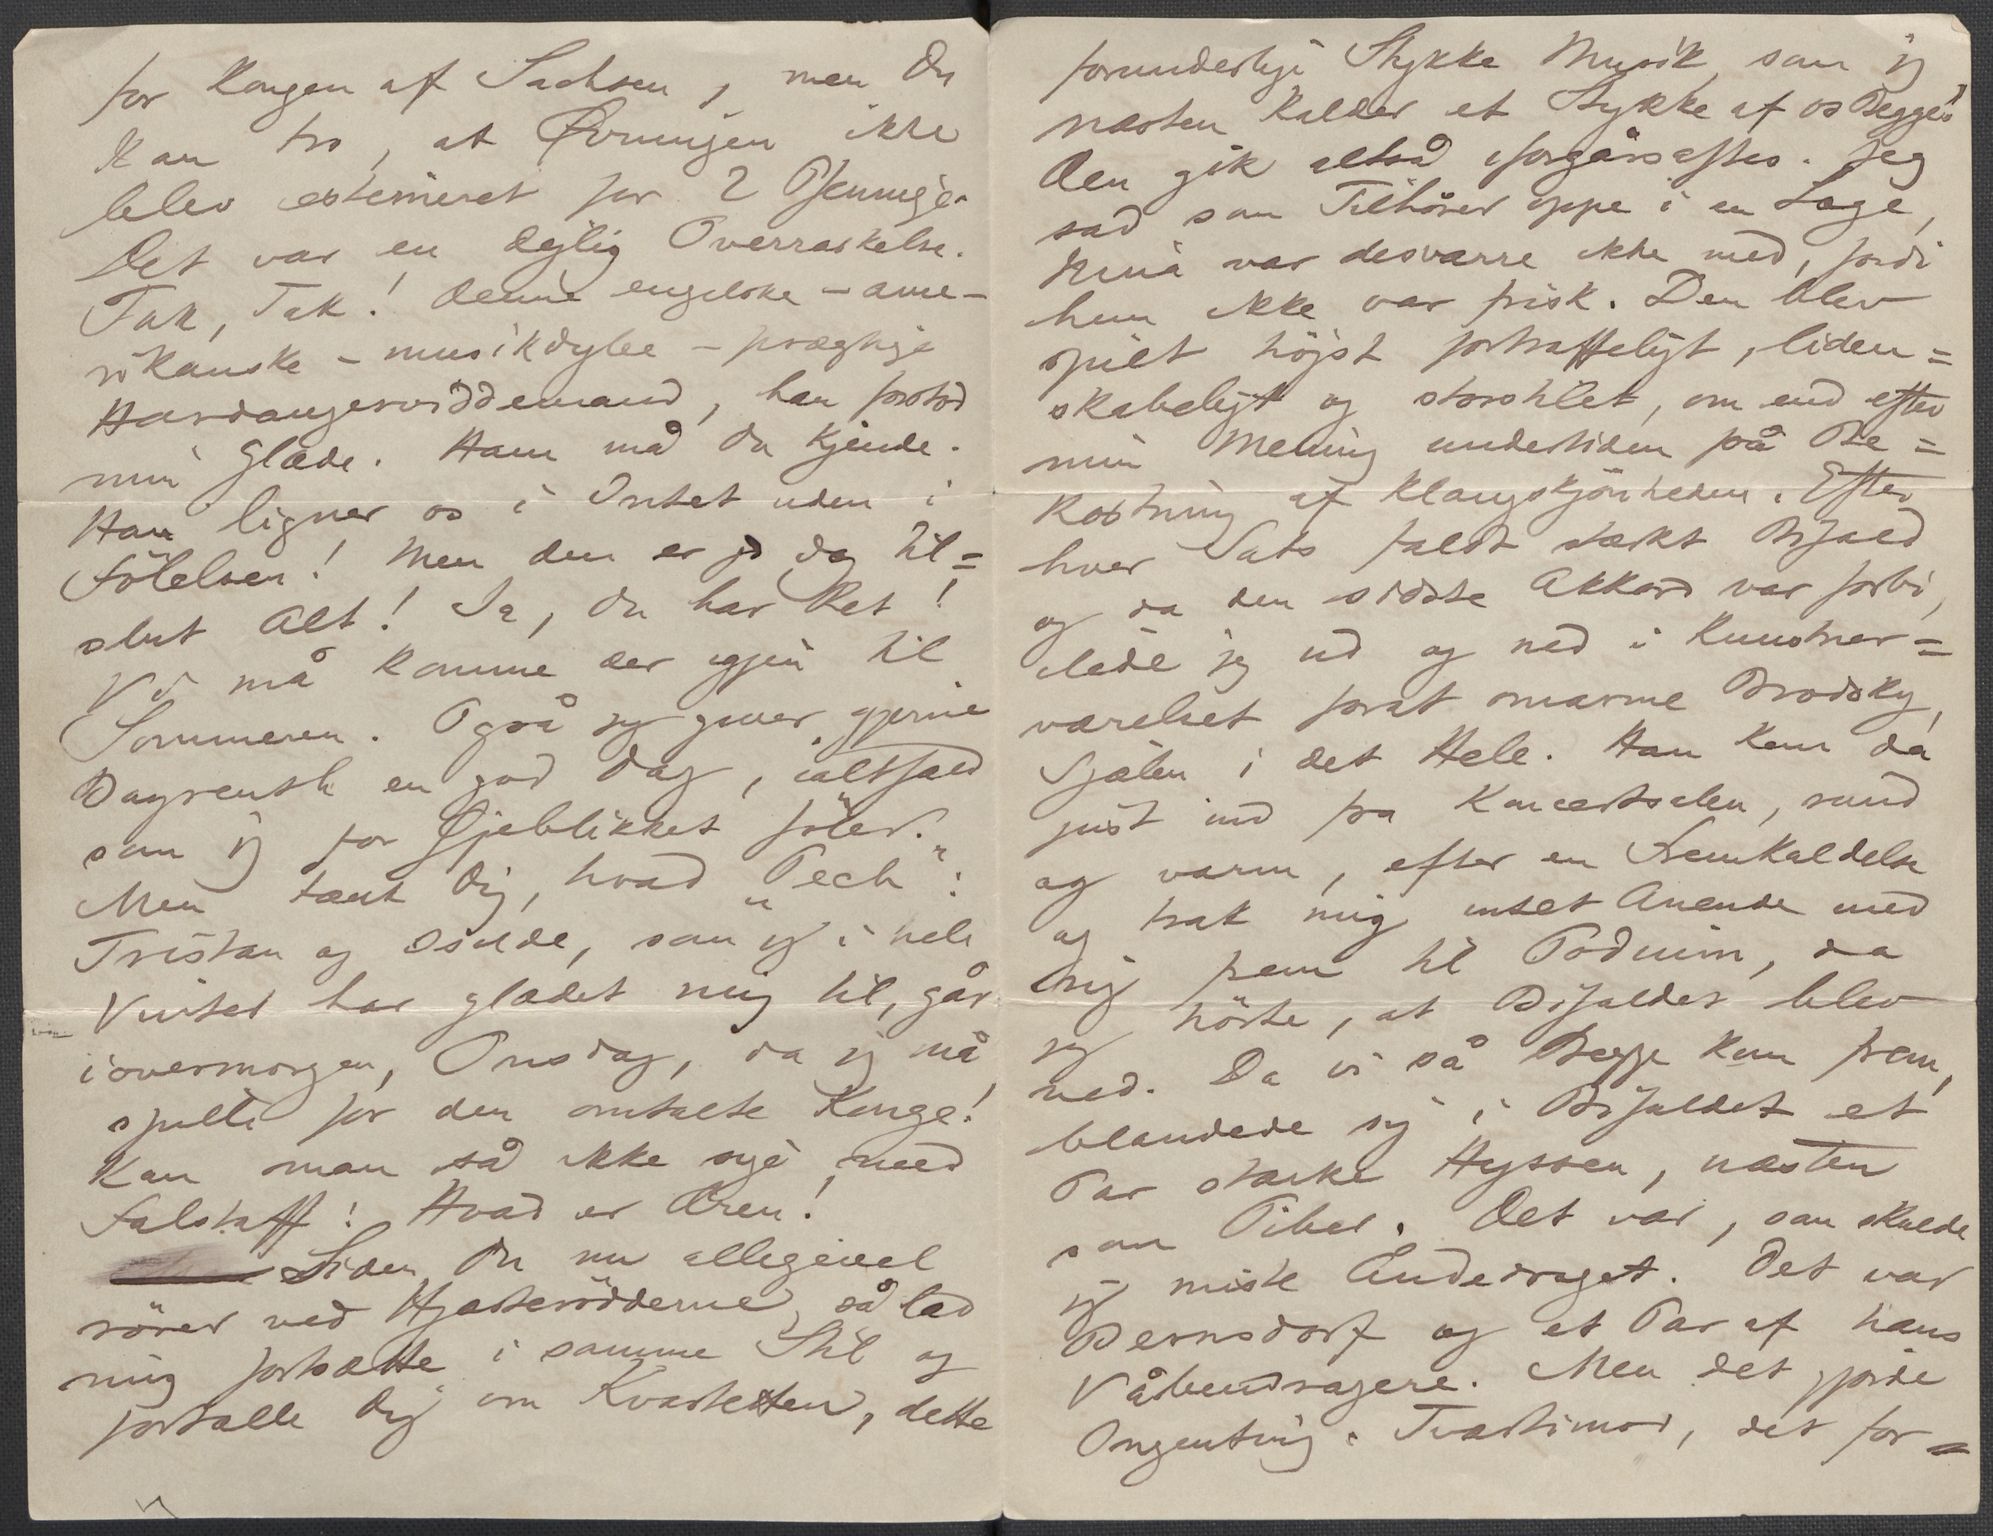 for Kongen af Sachsen, men Du
kan tro, at Øvningen ikke
blev estimeret for 2 Pfennige.
Det var en dejlig Overraskelse.
Tak, Tak! Denne engelske – ame-
rikanske – musikdybe – prægtige
Hardangerviddemand, han forstod
min Glæde. Ham må Du kjende.
Han ligner os i Intet uden i
Følelsen! Men den er jo dog til=
slut Alt! Ja, Du har Ret!
Vi må komme der igjen til
Sommeren. Også jeg giver gjerne
Dagrenten en god Dag, ialtfald
som jeg for Øjeblikket føler.
Men tænk Dig, hvad "Pech":
Tristan og Isolde, som jeg i hele
Vinter har glædet mig til, går
iovermorgen, Onsdag, da jeg må
spille for den omtalte Konge!
Kan man så ikke sige med
Falstaff: Hvad er Æren!
Siden Du nu alligevel
rører ved Hjerterødderne, så lad
mig fortsætte i samme Stil og
fortælle Dig om Kvartetten, dette
forunderlige Stykke Musik, som jeg
næsten kalder et Stykke af os Begge!
Den gik altså iforgårsaftes. Jeg
sad som Tilhører oppe i en Loge,
Nina var desværre ikke med, fordi
hun ikke var frisk. Den blev
spilt højst fortræffeligt, liden=
skabeligt og storstilet, om end efter
min Mening undertiden på Be=
kostning af Klangskjønheden. Efter
hver Sats faldt stærkt Bifald
og da den sidste Akkord var forbi,
ilede jeg ud og ned i Kunstner=
værelset forat omarme Brodsky,
Sjælen i det Hele. Han kom da
just ind fra Koncertsalen, rund
og varm, efter en Fremkaldelse
og trak mig intet Anende med
sig frem til Podium, da
jeg hørte, at Bifaldet blev
ved. Da vi så Begge kom frem,
blandede sig i Bifaldet et
Par stærke Hyssen, næsten
som Piber. Det var, som skulde
jeg miste Åndedraget. Det var
Bernsdorf og et Par af hans
Våbendragere. Men det gjorde
Ingenting. Tværtimod, det for=